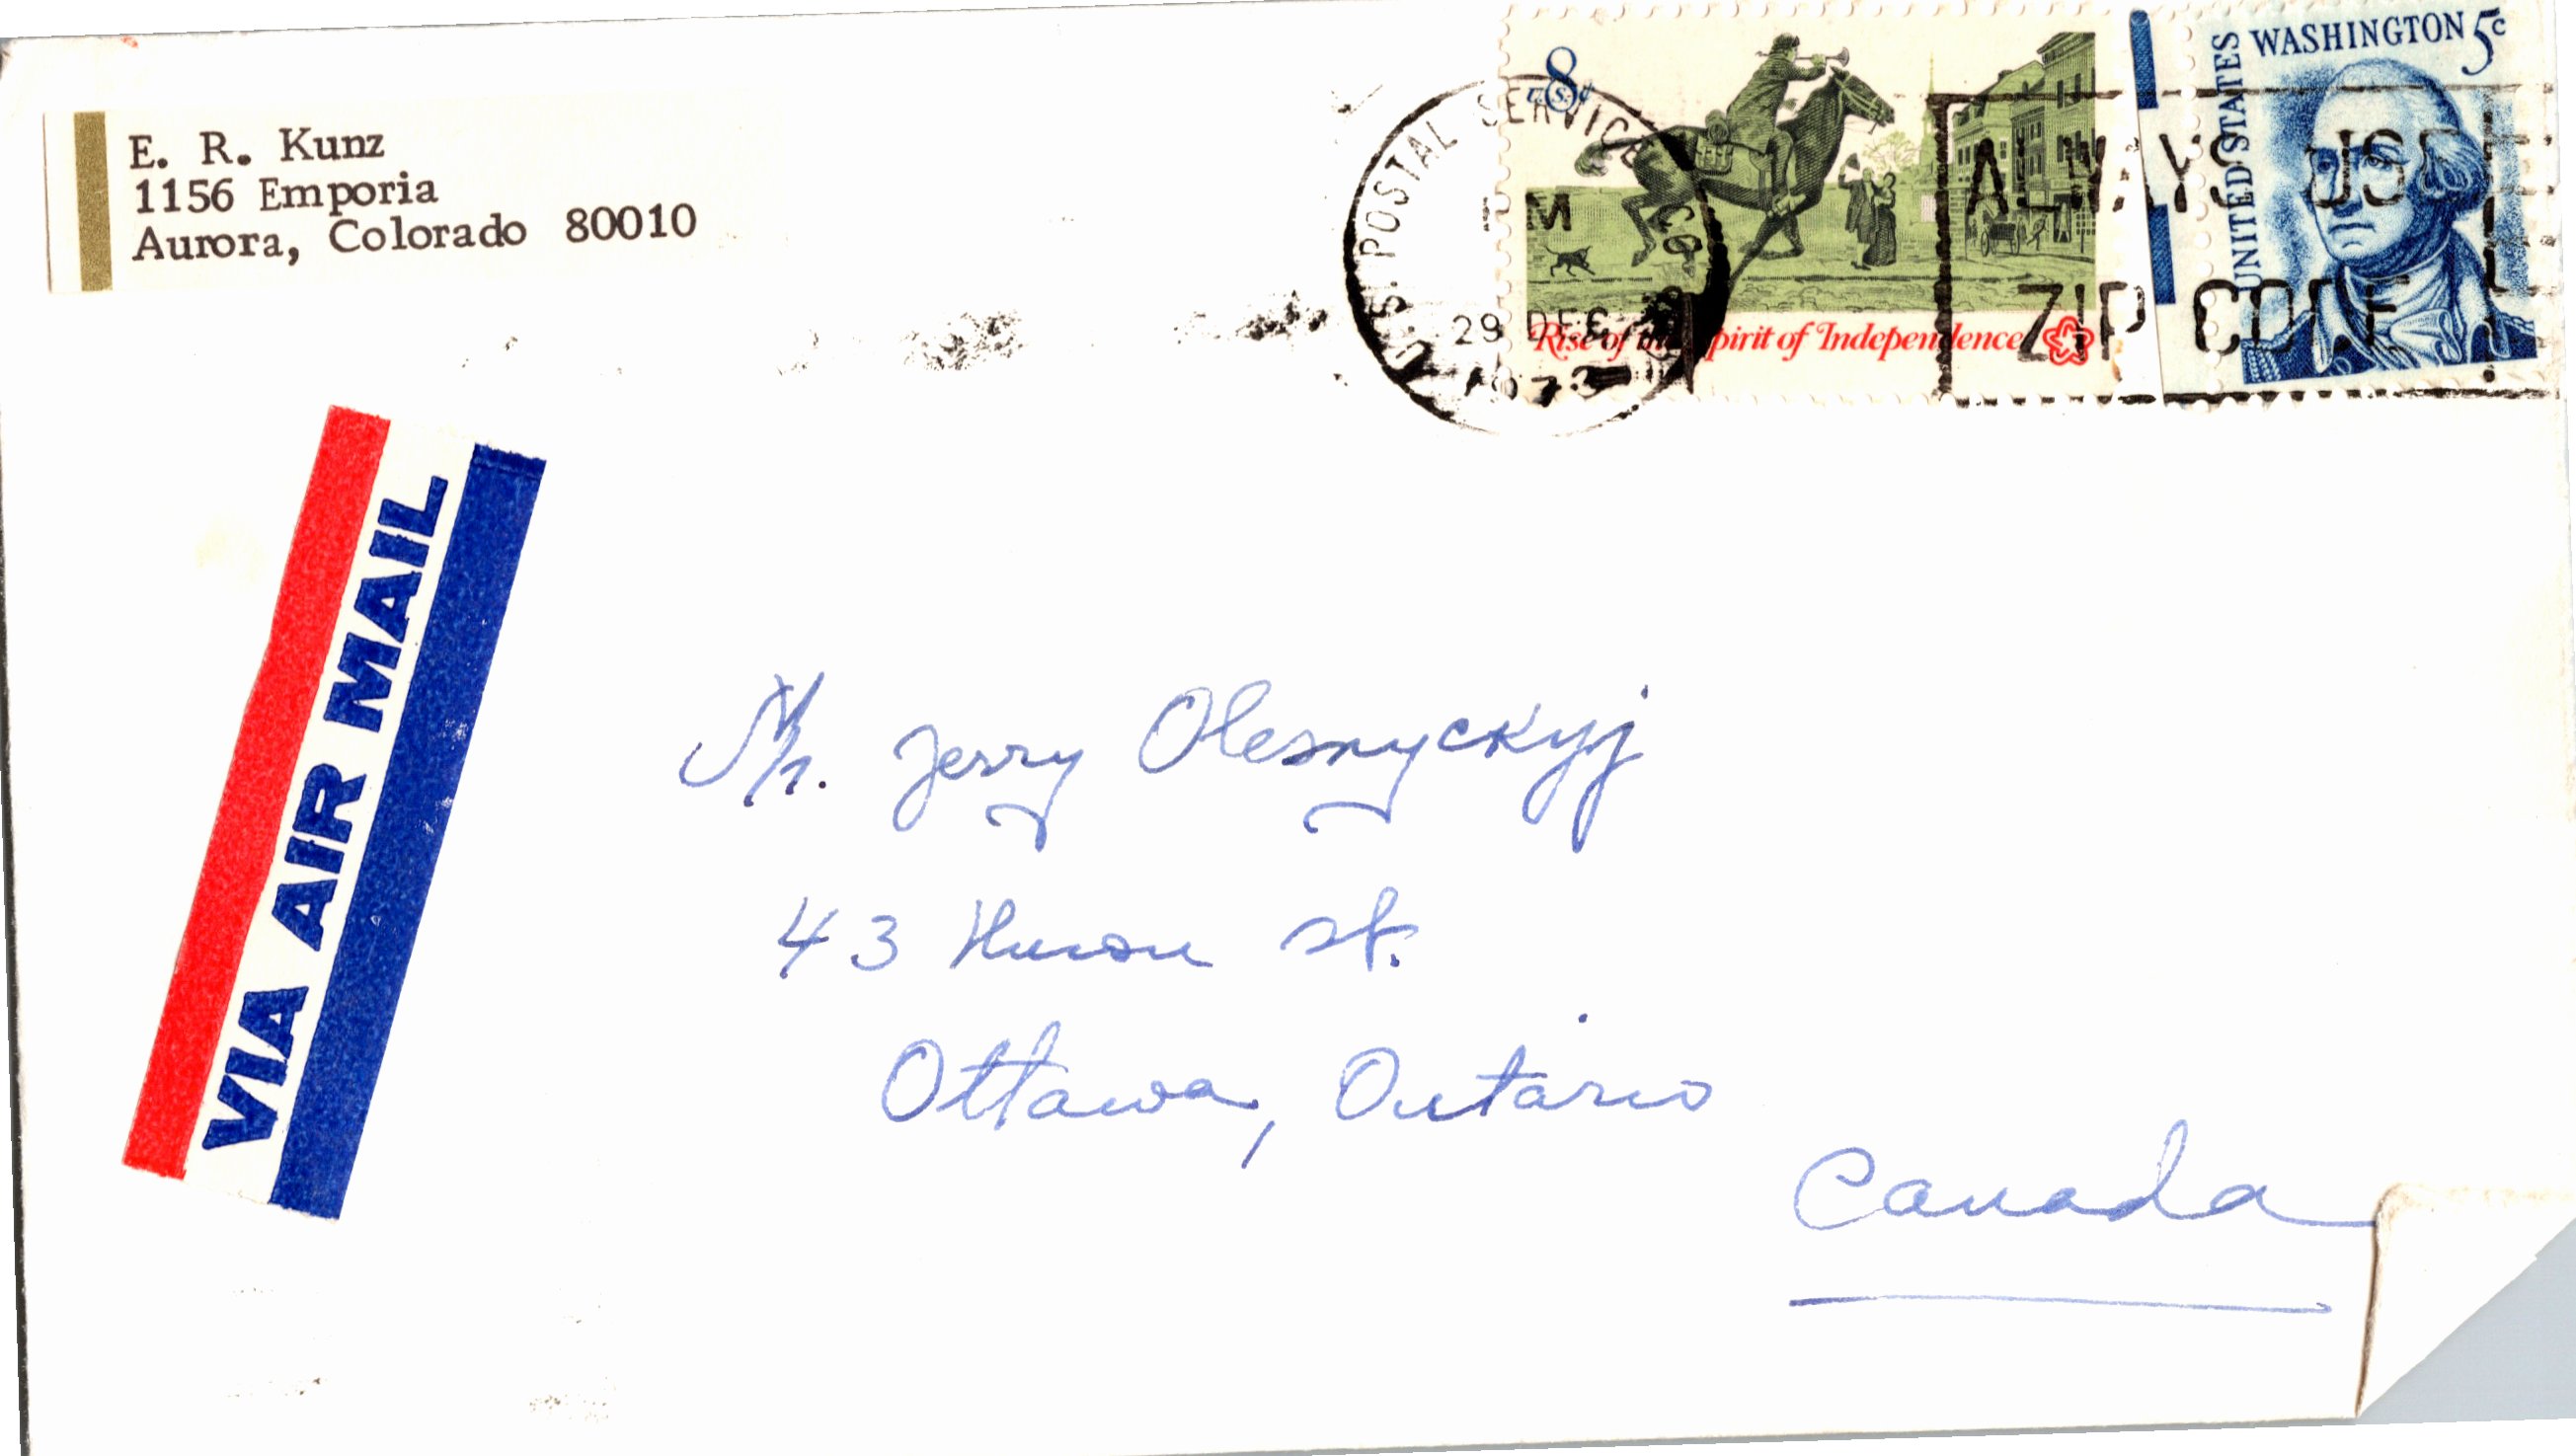 E. R. Kunz
1156 Emporia
Aurora, Colorado 80010
8
U.S. ¢
Rise of the Spirit of Independence
UNITED STATES
WASHINGTON 5c
U.S. POSTAL SERVICE CO
M
29 DEC
1973
ALWAYS USE
ZIP CODE
VIA AIR MAIL
Mr. Jerry Olesnyckyj
43 Huron st.
Ottawa, Ontario
Canada